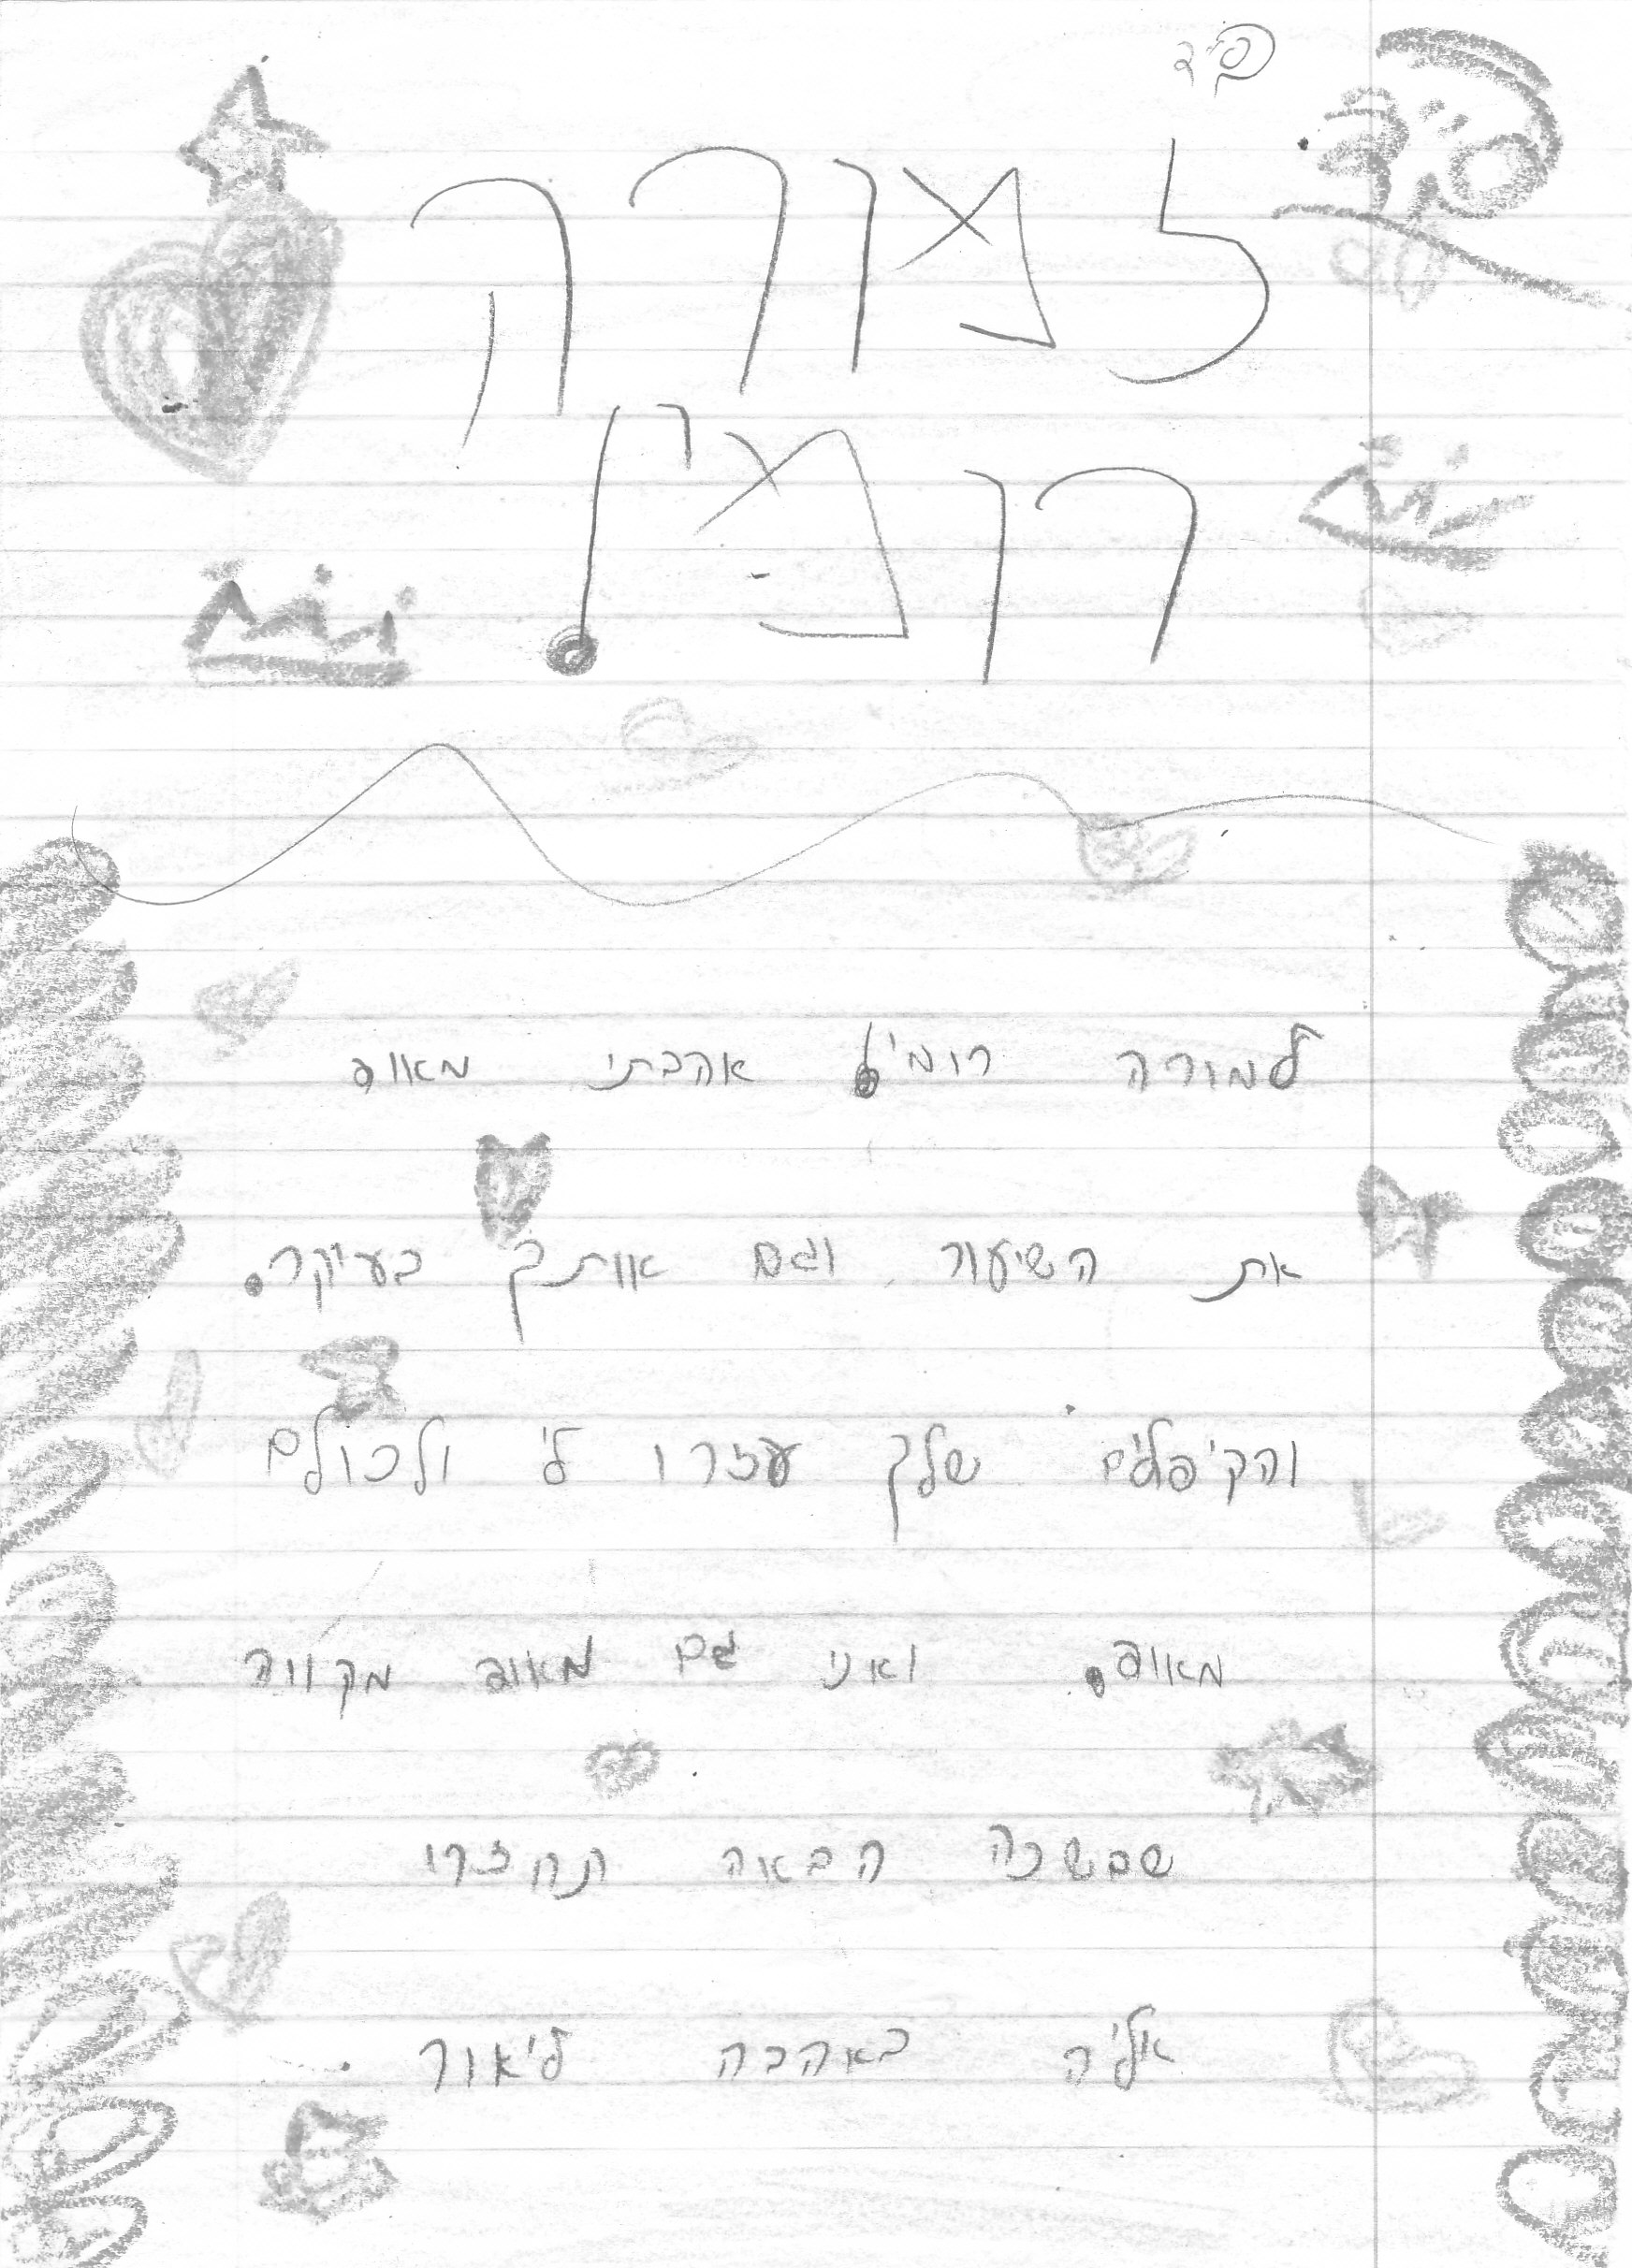 בס"ד
למורה
רומי!
למורה רומי! אהבתי מאוד
את השיעור וגם אותך בעיקר.
והקיפולים שלך עזרו לי ולכולם
מאוד. ואני גם מאוד מקווה
שבשנה הבאה תחזרו
אליה באהבה ליאור